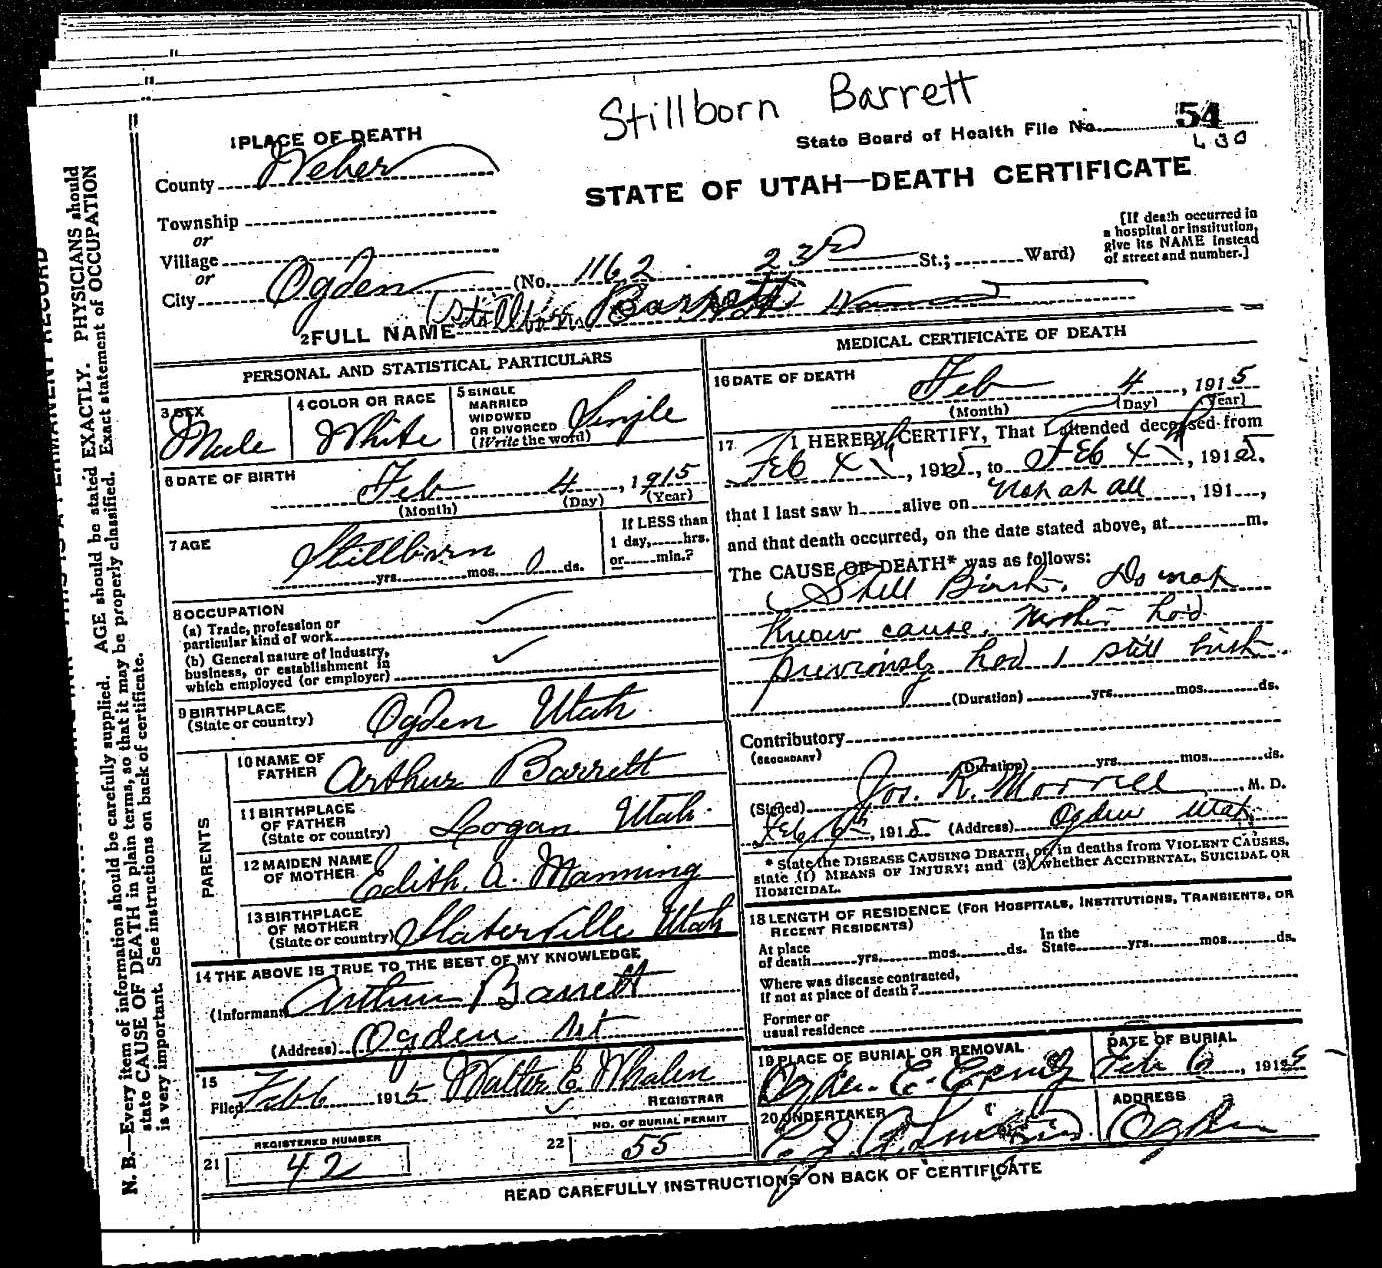 Stillborn Barrett
1 PLACE OF DEATH
State Board of Health File No. 54
630
County Weber
STATE OF UTAH—DEATH CERTIFICATE
Township
or
Village
or
City Ogden (No. 1162 23rd St.; Ward)
[If death occurred in
a hospital or institution,
give its NAME instead
of street and number.]
2 FULL NAME (Stillborn Barrett
PERSONAL AND STATISTICAL PARTICULARS
3 SEX
Male
4 COLOR OR RACE
White
5 SINGLE
MARRIED
WIDOWED
OR DIVORCED
(Write the word)
Single
6 DATE OF BIRTH
Feb 4, 1915
(Month) (Day) (Year)
7 AGE
Stillborn
yrs. mos. 0 ds.
If LESS than
1 day, hrs.
or min.?
8 OCCUPATION
(a) Trade, profession or
particular kind of work
(b) General nature of Industry,
business, or establishment in
which employed (or employer)
9 BIRTHPLACE
(State or country)
Ogden Utah
PARENTS
10 NAME OF
FATHER
Arthur Barrett
11 BIRTHPLACE
OF FATHER
(State or country)
Logan Utah.
12 MAIDEN NAME
OF MOTHER
Edith. A. Manning
13 BIRTHPLACE
OF MOTHER
(State or country)
Slaterville Utah
14 THE ABOVE IS TRUE TO THE BEST OF MY KNOWLEDGE
(Informant Arthur Barrett
(Address) Ogden
15
Filed Feb 6 1915 Walter E. Whalen
REGISTRAR
21
REGISTERED NUMBER
42
22
NO. OF BURIAL PERMIT
55
MEDICAL CERTIFICATE OF DEATH
16 DATE OF DEATH
Feb 4, 1915
(Month) (Day) (Year)
17 I HEREBY CERTIFY, That I attended deceased from
Feb 4, 1915, to Feb 4, 1915.
that I last saw h alive on Not at all, 191,
and that death occurred, on the date stated above, at m.
The CAUSE OF DEATH* was as follows:
Still Birth. Do not
know cause. Mother had
previously had 1 still birth
(Duration) yrs. mos. ds.
Contributory
(SECONDARY)
(Duration) yrs. mos. ds.
(Signed) Jos. R. Morrell, M. D.
Feb 6th, 1915 (Address) Ogden Utah
* State the DISEASE CAUSING DEATH, or, in deaths from VIOLENT CAUSES,
state (1) MEANS OF INJURY; and (2) whether ACCIDENTAL, SUICIDAL OR
HOMICIDAL.
18 LENGTH OF RESIDENCE (FOR HOSPITALS, INSTITUTIONS, TRANSIENTS, OR
RECENT RESIDENTS)
At place
of death yrs. mos. ds.
In the
State yrs. mos. ds.
Where was disease contracted,
if not at place of death?
Former or
usual residence
19 PLACE OF BURIAL OR REMOVAL
Ogden C.
DATE OF BURIAL
Feb 6, 1915
20 UNDERTAKER
ADDRESS
Ogden
READ CAREFULLY INSTRUCTIONS ON BACK OF CERTIFICATE
N. B.—Every item of information should be carefully supplied. AGE should be stated EXACTLY. PHYSICIANS should
state CAUSE OF DEATH in plain terms, so that it may be properly classified. Exact statement of OCCUPATION
is very important. See instructions on back of certificate.